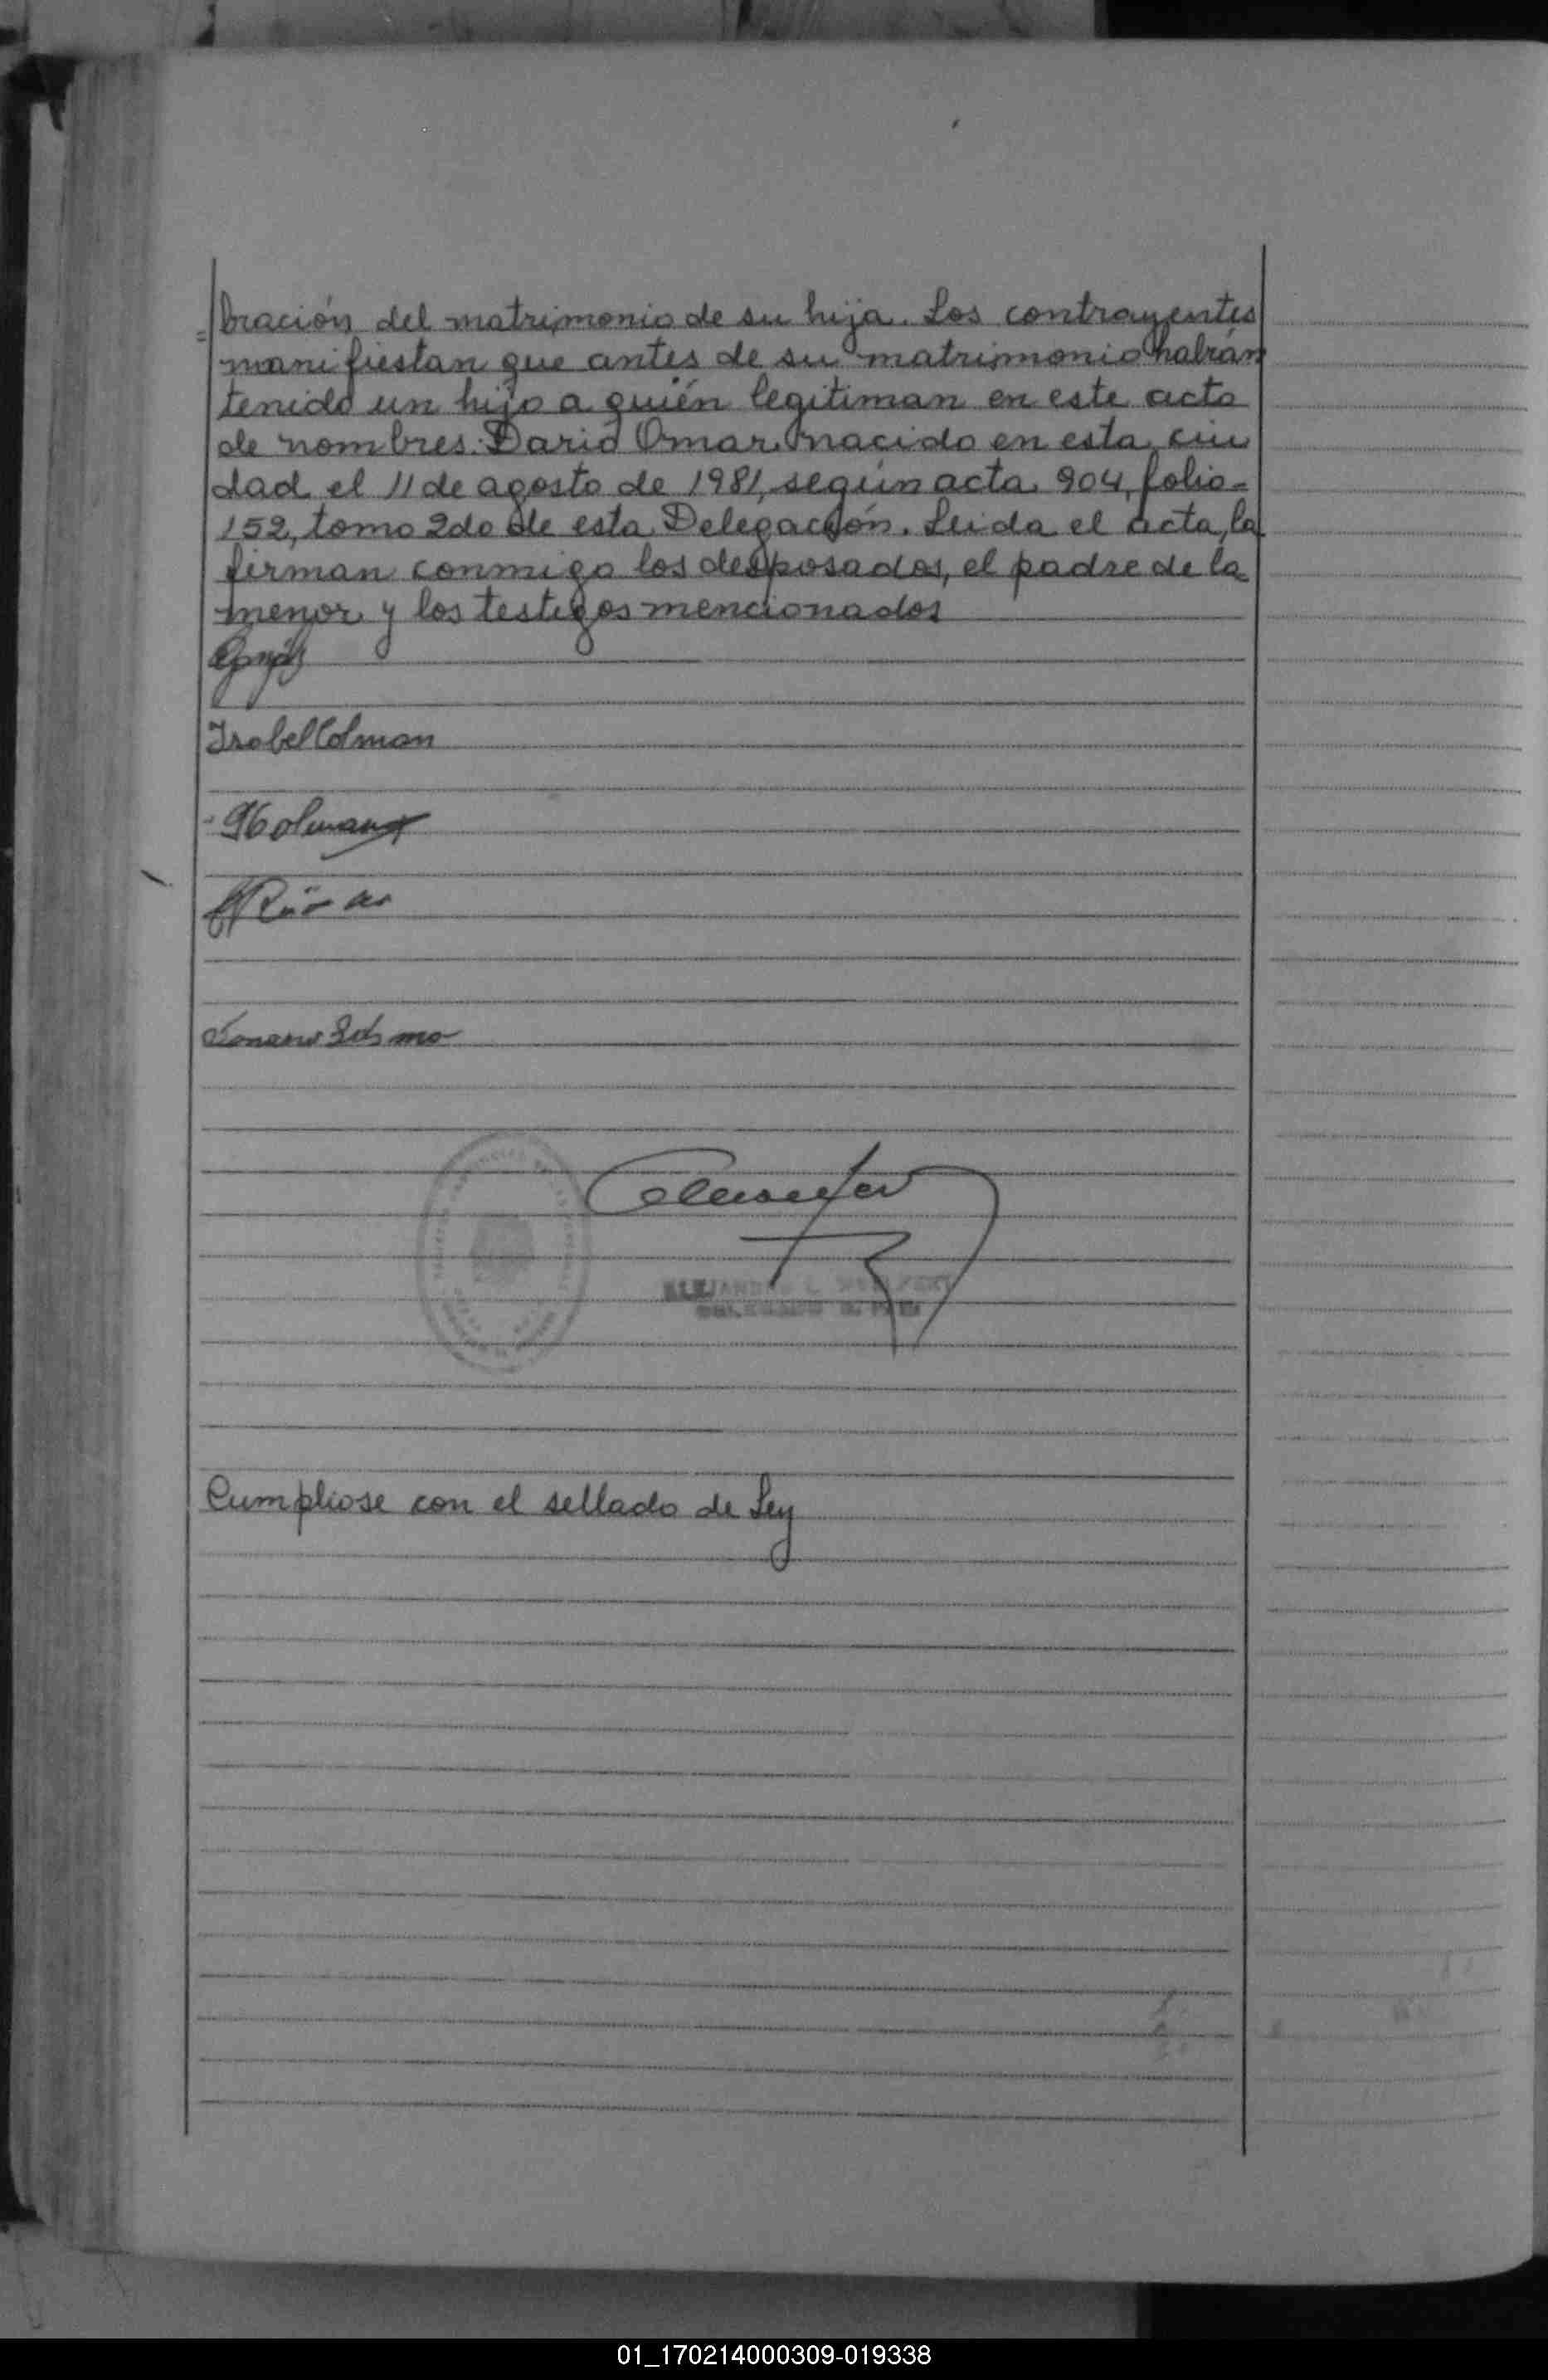 =bración del matrimonio de su hija. Los contrayentes
manifiestan que antes de su matrimonio habrán
tenido un hijo a quién legitiman en este acto
de nombres: Dario Omar nacido en esta ciu
dad el 11 de agosto de 1981, según acta 904, folio-
152, tomo 2do de esta Delegación. Leida el acta, la
firman conmigo los desposados, el padre de la
menor y los testigos mencionados
Isabel Colman
Cumpliose con el sellado de Ley
01_170214000309-019338